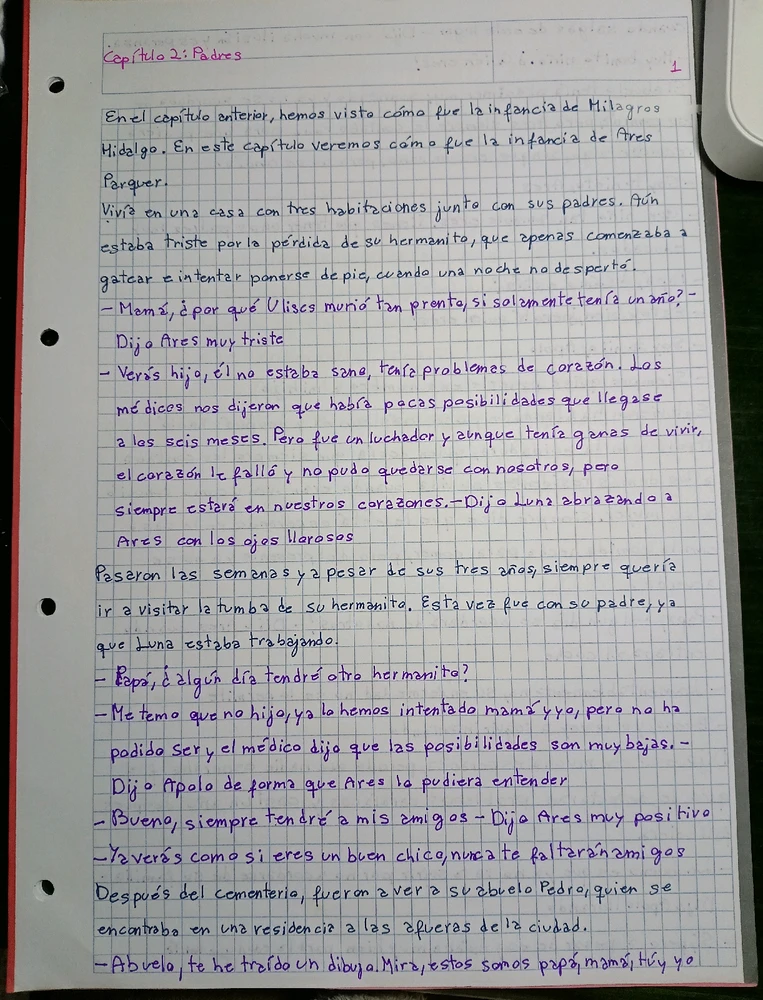 Capítulo 2: Padres
1
En el capítulo anterior, hemos visto cómo fue la infancia de Milagros
Hidalgo. En este capítulo veremos cómo fue la infancia de Ares
Parquer.
Vivía en una casa con tres habitaciones junto con sus padres. Aún
estaba triste por la pérdida de su hermanito, que apenas comenzaba a
gatear e intentar ponerse de pie, cuando una noche no despertó.
- Mamá, ¿por qué Ulises murió tan pronto, si solamente tenía un año? -
Dijo Ares muy triste
- Verás hijo, él no estaba sano, tenía problemas de corazón. Los
médicos nos dijeron que había pocas posibilidades que llegase
a los seis meses. Pero fue un luchador y aunque tenía ganas de vivir,
el corazón le falló y no pudo quedarse con nosotros, pero
siempre estará en nuestros corazones. - Dijo Luna abrazando a
Ares con los ojos llorosos
Pasaron las semanas y a pesar de sus tres años, siempre quería
ir a visitar la tumba de su hermanito. Esta vez fue con su padre, ya
que Luna estaba trabajando.
- Papá, ¿algún día tendré otro hermanito?
- Me temo que no hijo, ya lo hemos intentado mamá y yo, pero no ha
podido ser y el médico dijo que las posibilidades son muy bajas. -
Dijo Apolo de forma que Ares lo pudiera entender
- Bueno, siempre tendré a mis amigos - Dijo Ares muy positivo
- Ya verás como si eres un buen chico, nunca te faltarán amigos
Después del cementerio, fueron a ver a su abuelo Pedro, quien se
encontraba en una residencia a las afueras de la ciudad.
- Abuelo, te he traído un dibujo. Mira, estos somos papá, mamá, tú y yo